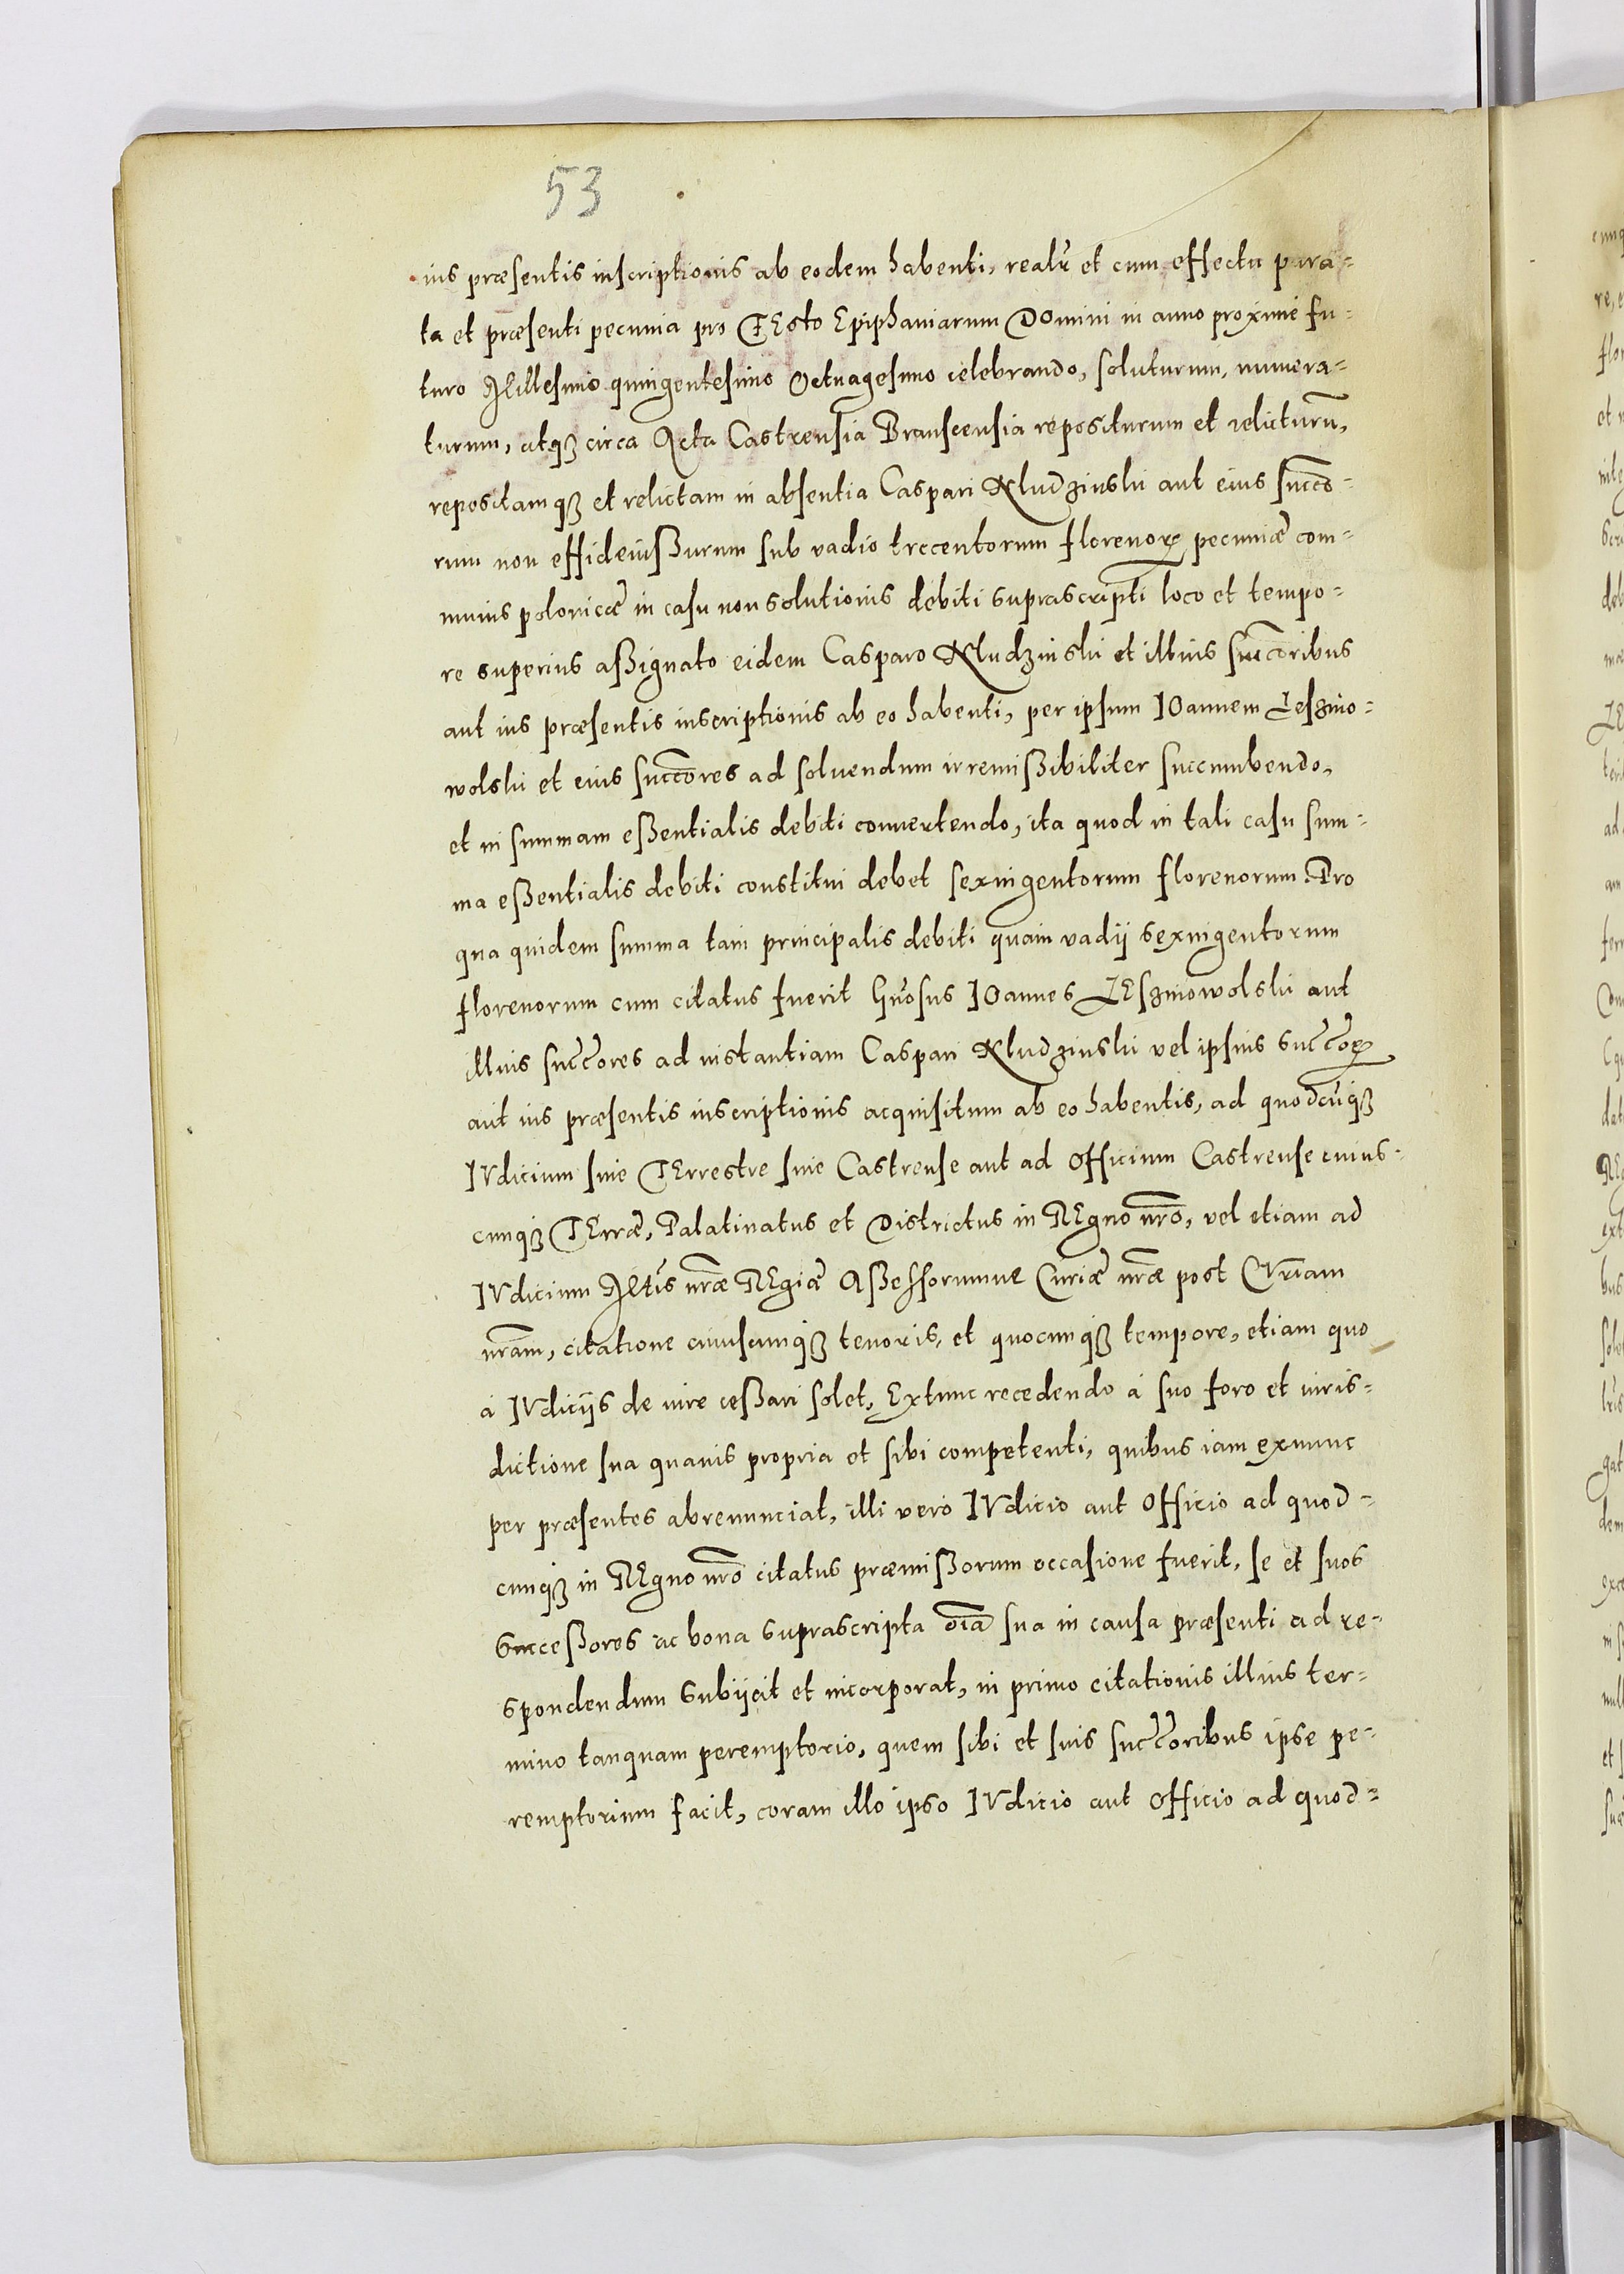 53
ius præsentis inscriptionis ab eodem habenti, realr̃ et cum effectu para-
ta et præsenti pecunia pro FEsto Epiphaniarum DOmini in anno proximè fu-
turo Millesimo quingentesimo Octuagesimo celebrando, soluturum, numera-
turum, atqꝫ circa Acta Castrensia Branscensia repositurum et relicturũ,
repositamqꝫ et relictam in absentia Caspari Kludzinski aut eius succõ-
rum non effideiußurum sub vadio trecentorum florenoꝝ pecuniæ com-
munis polonicæ in casu non solutionis debiti suprascripti loco et tempo-
re superius aßignato eidem Casparo Kludzinski et illius succõribus
aut ius præsentis inscriptionis ab eo habenti, per ipsum IOannem Leszno-
wolski et eius succõres ad soluendum irremißibiliter succumbendo,
et in summam eßentialis debiti conuertendo, ita quod in tali casu sum-
ma eßentialis debiti constitui debet sexingentorum florenorum. Pro
qua quidem summa tam principalis debiti quàm vadij sexingentorum
florenorum cum citatus fuerit Gñosus IOannes LEsznowolski aut
illius succ̃ores ad instantiam Caspari Kludzinski vel ipsius succ̃oꝝ
aut ius præsentis inscriptionis acquisitum ab eo habentis, ad quodcũqꝫ
IVdicium siue TErrestre siue Castrense aut ad Officium Castrense cuius-
cunqꝫ TErræ, Palatinatus et Districtus in REgno nr̃o, vel etiam ad
IVdicium Mtis nr̃æ REgiæ Aßessorumue Curiæ nr̃æ post CVriam
nr̃am, citatione cuiuscunqꝫ tenoris, et quocunqꝫ tempore, etiam quo
à IVdicijs de iure ceßari solet, Extunc recedendo à suo foro et iuris-
dictione sua quauis propria et sibi competenti, quibus iam exnunc
per præsentes abrenunciat, illi verò IVdicio aut Officio ad quod-
cunqꝫ in REgno nr̃o citatus præmißorum occasione fuerit, se et suos
Succeßores ac bona suprascripta oĩa sua in causa præsenti ad re-
spondendum subijcit et incorporat, in primo citationis illius ter-
mino tanquam peremptorio, quem sibi et suis succ̃oribus ipse pe-
remptorium facit, coram illo ipso IVdicio aut Officio ad quod-